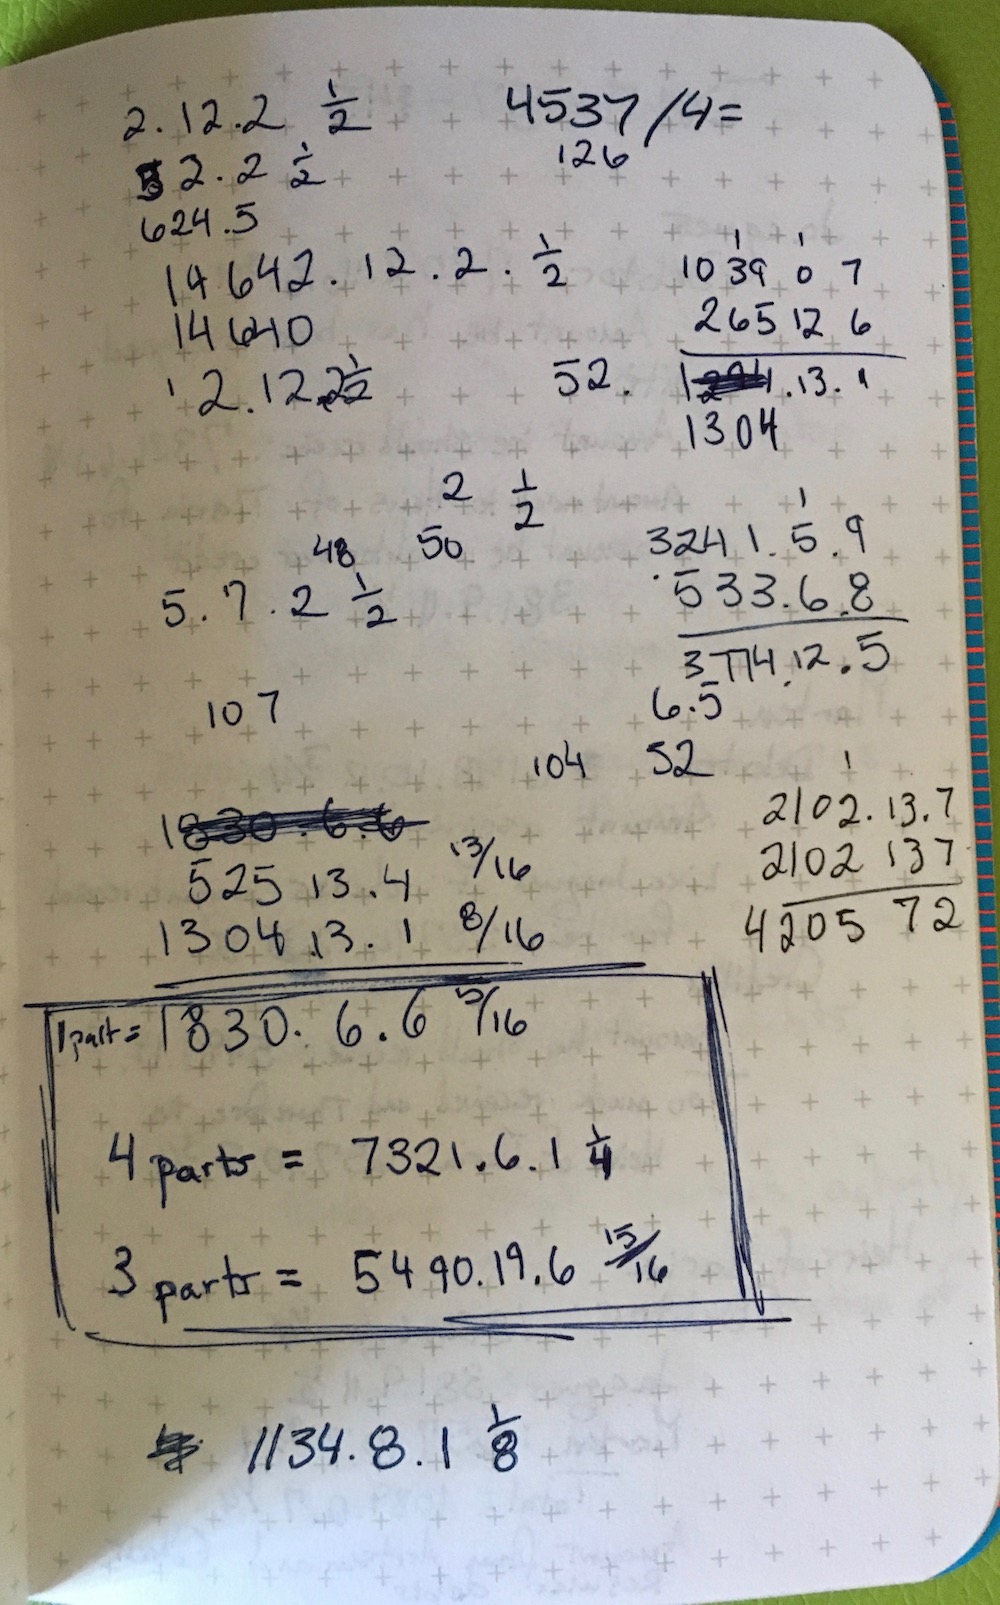 2.12.2 1/2
4537/4=
126
2.2 1/2
624.5
14642.12.2.1/2
14640
2.12.2 1/2
1 1
1039 0 7
265 12 6
52. .13.1
1304
2 1/2
48 50
5.7.2 1/2
107
1
3241.5.9
533.6.8
3774.12.5
6.5
104 52
525 13.4 13/16
1304.13.1 8/16
1
2102.13.7
2102 137
4205 72
1 part = 1830.6.6 5/16
4 parts = 7321.6.1 1/4
3 parts = 5490.19.6 15/16
1134.8.1 1/8